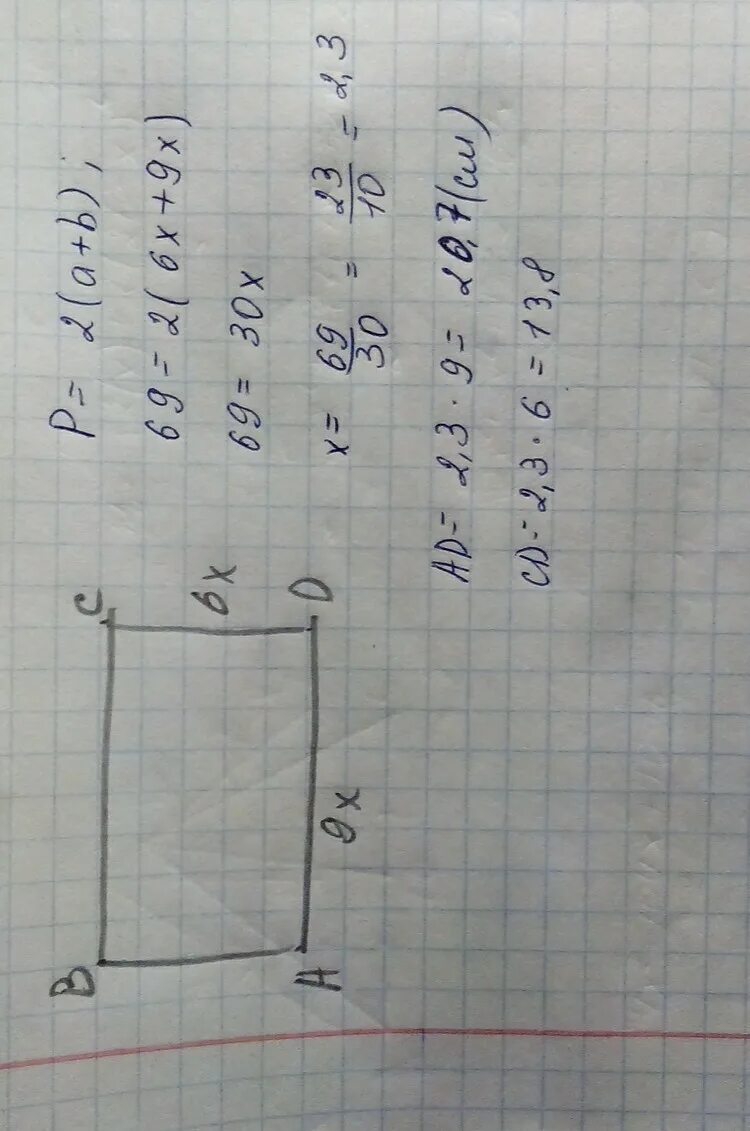 B
C
6x
A
9x
D
P = 2(a+b);
69 = 2(6x+9x)
69 = 30x
x = 69/30 = 23/10 = 2,3
AD = 2,3 · 9 = 20,7(см)
CD = 2,3 · 6 = 13,8